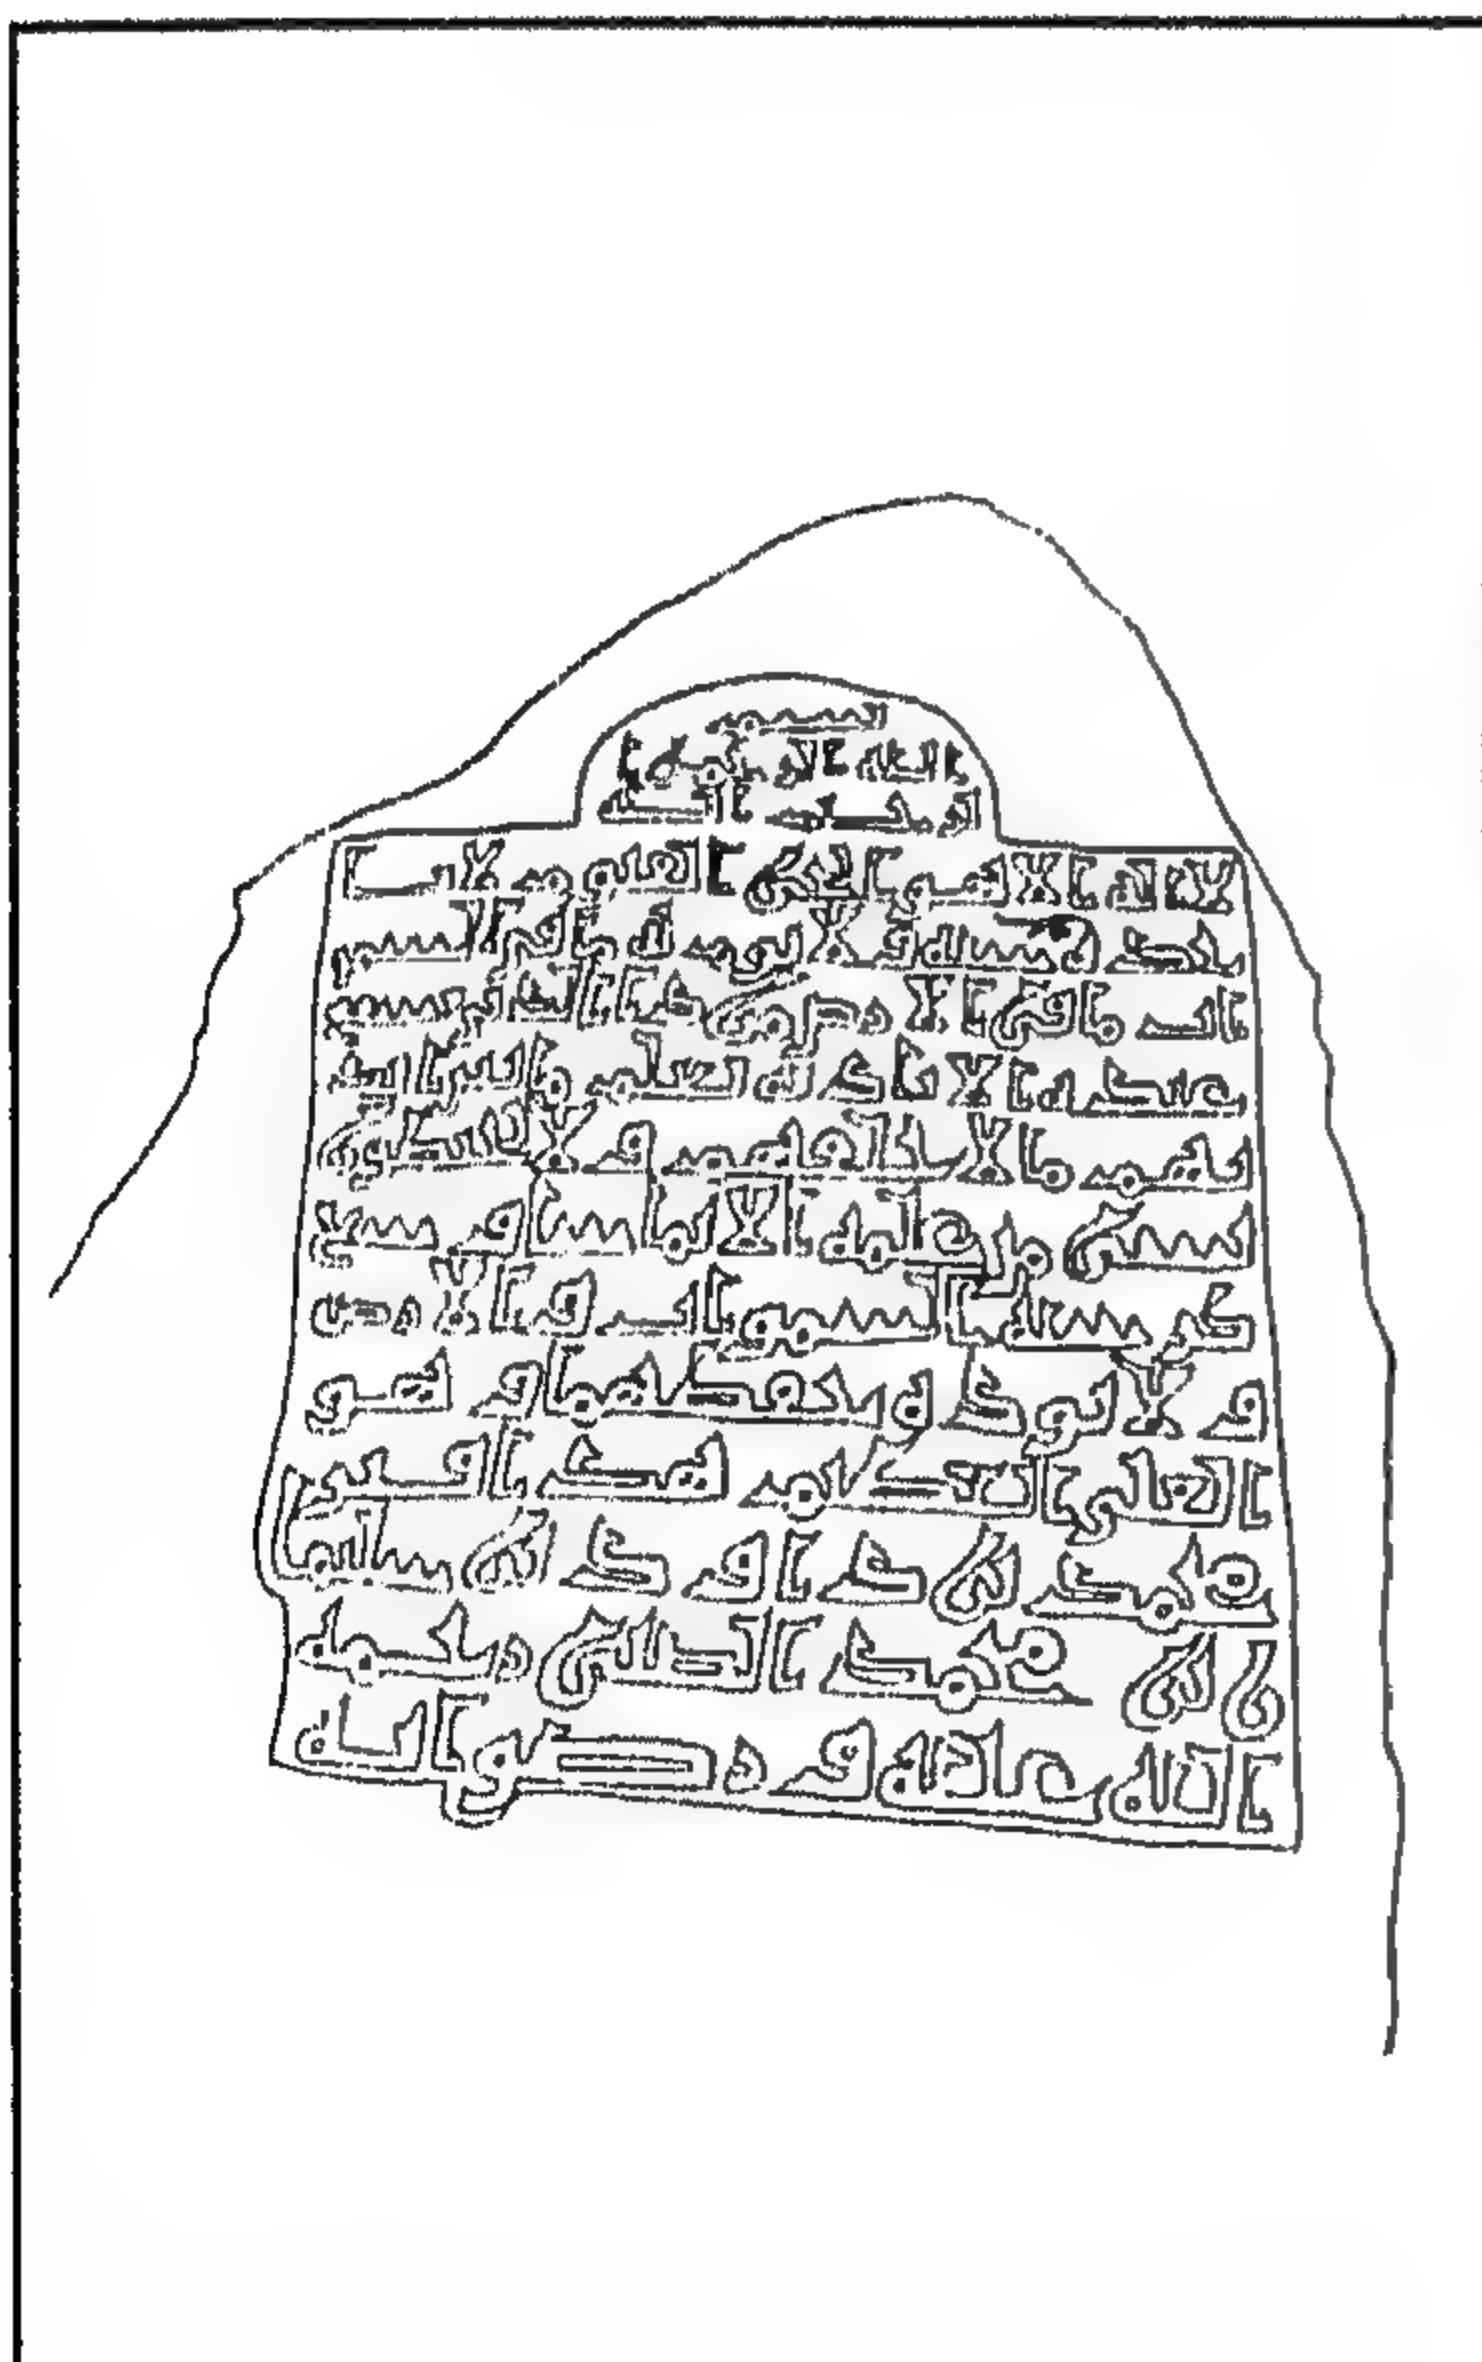 بسم
الله الرحمن
الرحيم الله
لا اله الا هو الحي القيوم لا تا
خذه سنة ولا نوم له ما في السمو
ات وما في الارض من ذا الذي يشفع
عنده الا باذنه يعلم ما بين ايد
يهم وما خلفهم ولا يحيطون
بشي من علمه الا بما شا وسع
كرسيه السموات والارض
ولا يوده حفظهما وهو
العلي العظيم هذا قبر
محمد بن داود بن سليما
ن بن محمد الطلحي رحمة
الله عليه ورضوانه